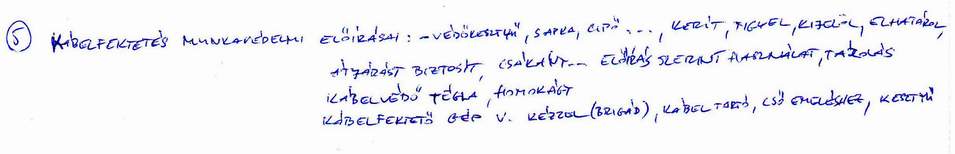 ⑤ KÁBELFEKTETÉS MUNKAVÉDELMI ELŐÍRÁSAI: - VÉDŐKESZTYŰ, SAPKA, CIPŐ ..., KERÍT, FIGYEL, KIJELÖL, ELHATÁROL,
ÁTJÁRÁST BIZTOSÍT, CSÁKÁNY... ELŐÍRÁS SZERINT HASZNÁLAT, TÁROLÁS
KÁBELVÉDŐ TÉGLA, HOMOKÁGY
KÁBELFEKTETŐ GÉP V. KÉZZEL (BRIGÁD), KÁBELTARTÓ, CSŐ EMELÉSHEZ, KESZTYŰ